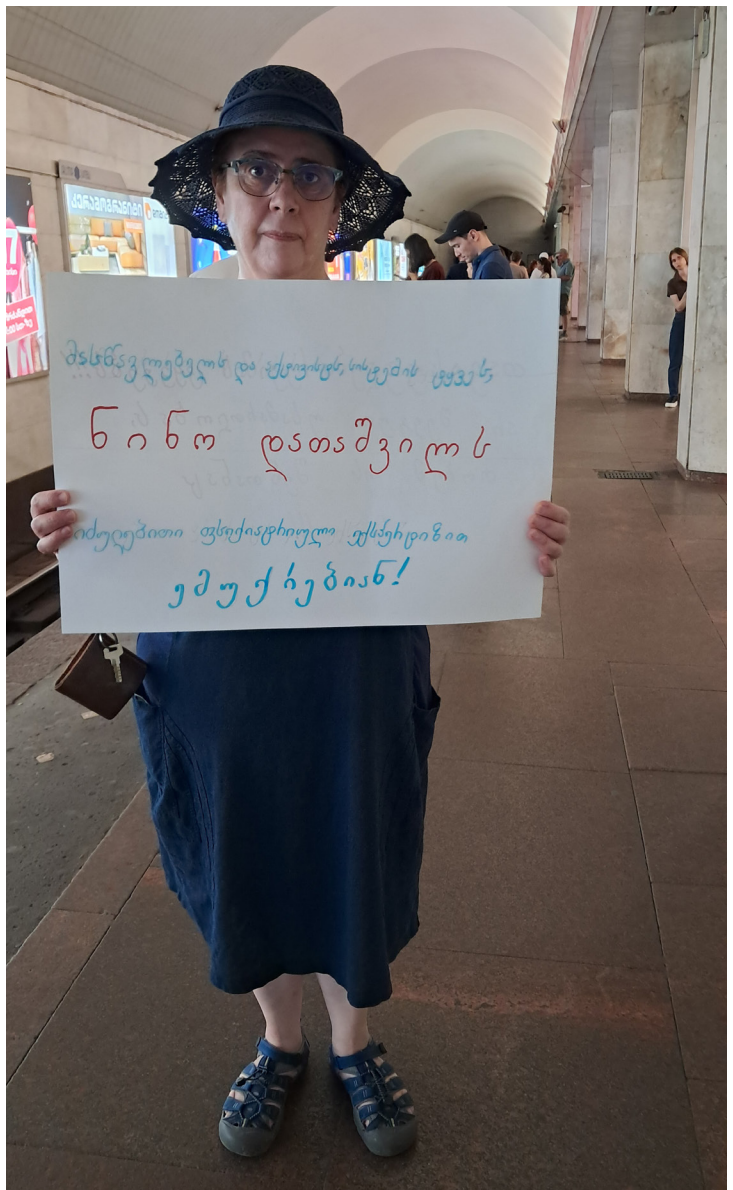 კერამოგრანიტი
მასწავლებელს და აქტივისტს, სისტემის ტყვეს,
ნინო დათაშვილს
იძულებითი ფსიქიატრიული ექსპერტიზით
ემუქრებიან!